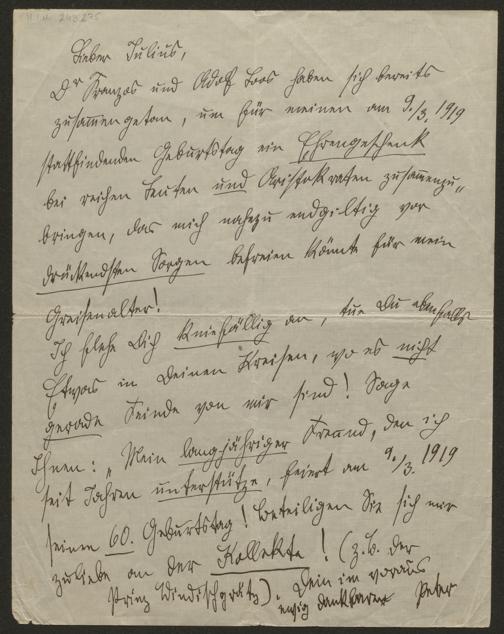 Lieber Julius,
Dr Franzos und Adolf Loos haben sich bereits
zusammengetan, um für meinen am 9./3. 1919
stattfindenden Geburtstag ein Ehrengeschenk
bei reichen Leuten und Aristokraten zusammenzu„
bringen, das mich nahezu endgiltig vor
drückendsten Sorgen befreien könnte für mein
Greisenalter!
Ich flehe Dich kniefällig an, tue Du ebenfalls
Etwas in Deinen Kreisen, wo es nicht
gerade Feinde von mir sind! Sage
Ihnen: „Mein langjähriger Freund, den ich
seit Jahren unterstütze, feiert am 9./3. 1919
seinen 60. Geburtstag! Beteiligen Sie sich mir
zuliebe an der Kollekte! (z.B. der
Prinz Windischgrätz). Dein im voraus
ewig dankbarer Peter